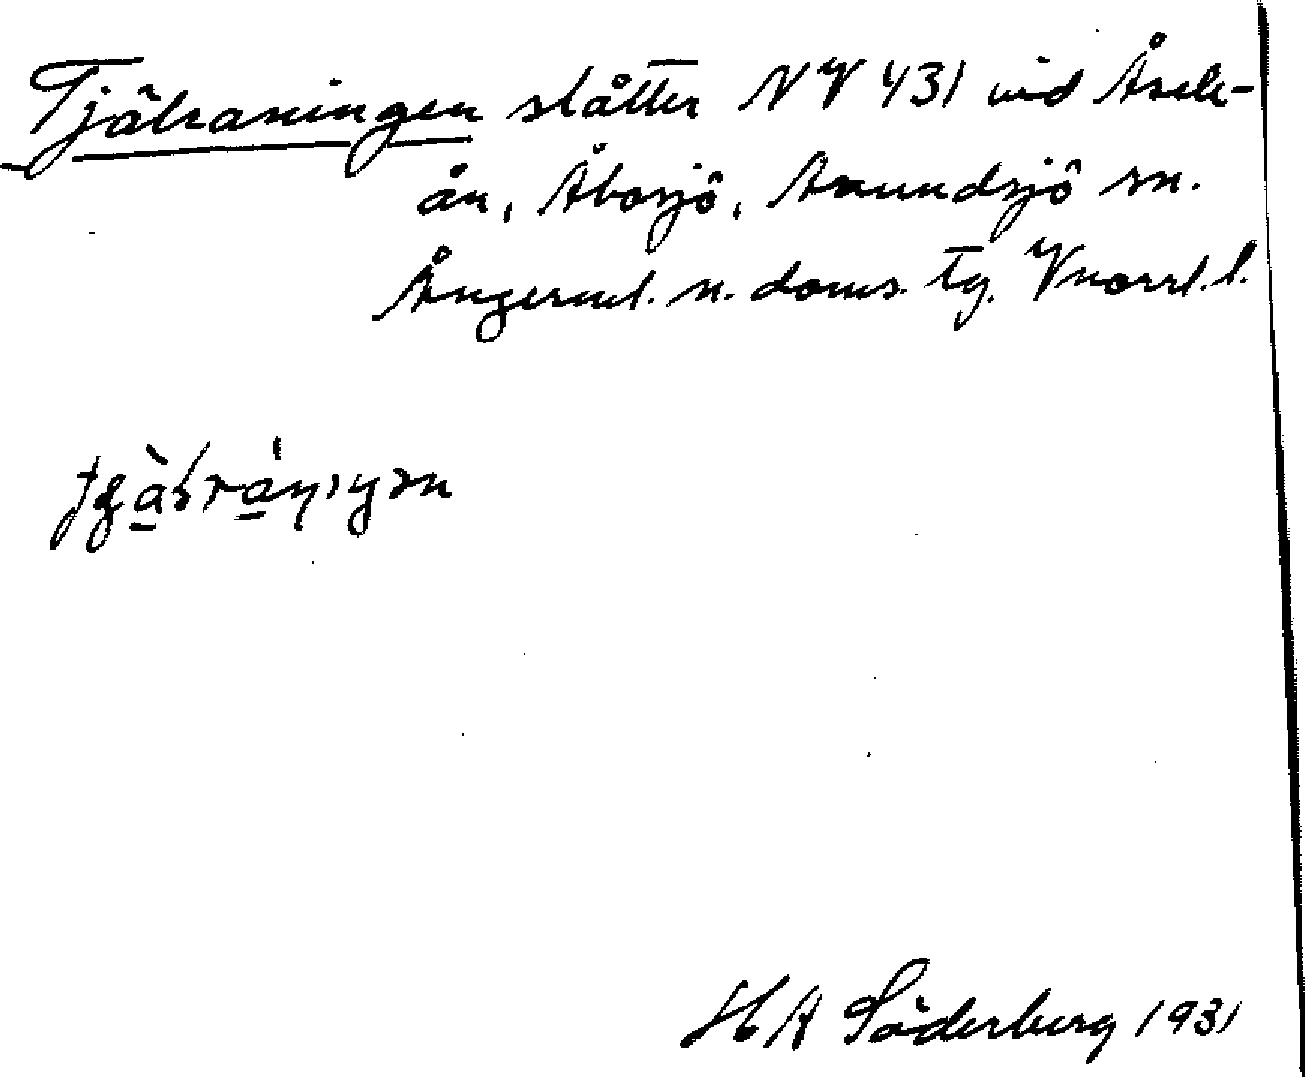 Tjälraningen slåtter NV 431 vid Åsele-
ån, Åbosjö, Anundsjö sn.
Ångerml. n. doms. tg. Vnorrl. l.
H A Söderberg 1931